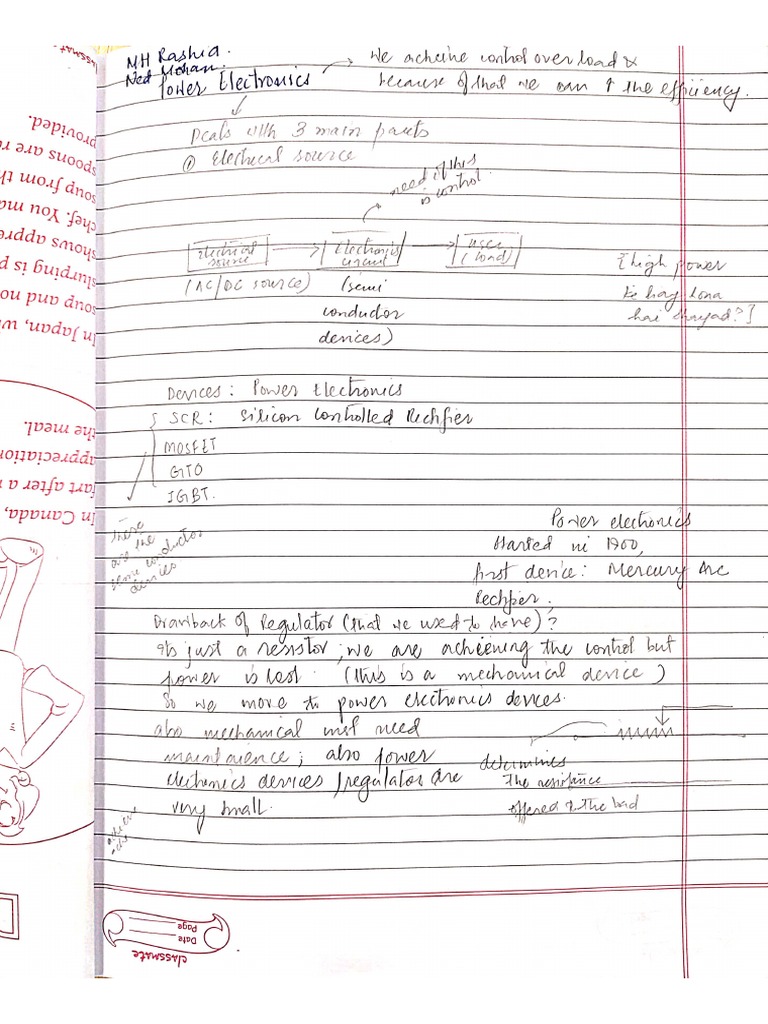 MH Rashid.
Ned Mohan.
Power Electronics → We acheive control over load &
because of that we can ↑ the efficiency.
Deals with 3 main parts
① Electrical source
need of this
is control.
Electrical source → Electronic circuit → user (load)
(AC/DC source) (semi
conductor
devices)
{high power
ke hay hona
hai shayad?}
Devices: Power Electronics
SCR: Silicon Controlled Rectifier
MOSFET
GTO
IGBT.
these
are the
semi conductor
devices
Power electronics
started in 1900,
first device: Mercury Arc
Rectifier;
Drawback of Regulator (that we used to have)?
its just a resistor; we are achieving the control but
power is lost. (this is a mechanical device)
So we move to power electronics devices.
also mechanical inst need
maintainence; also power
electronics devices/regulator are
very small.
determines
the resistance
offered to the load
achieve
classmate
Date
Page
In Japan, w
soup and no
slurping is p
shows appre
chef. You ma
soup from th
spoons are re
provided.
In Canada,
fart after a m
appreciation
the meal.